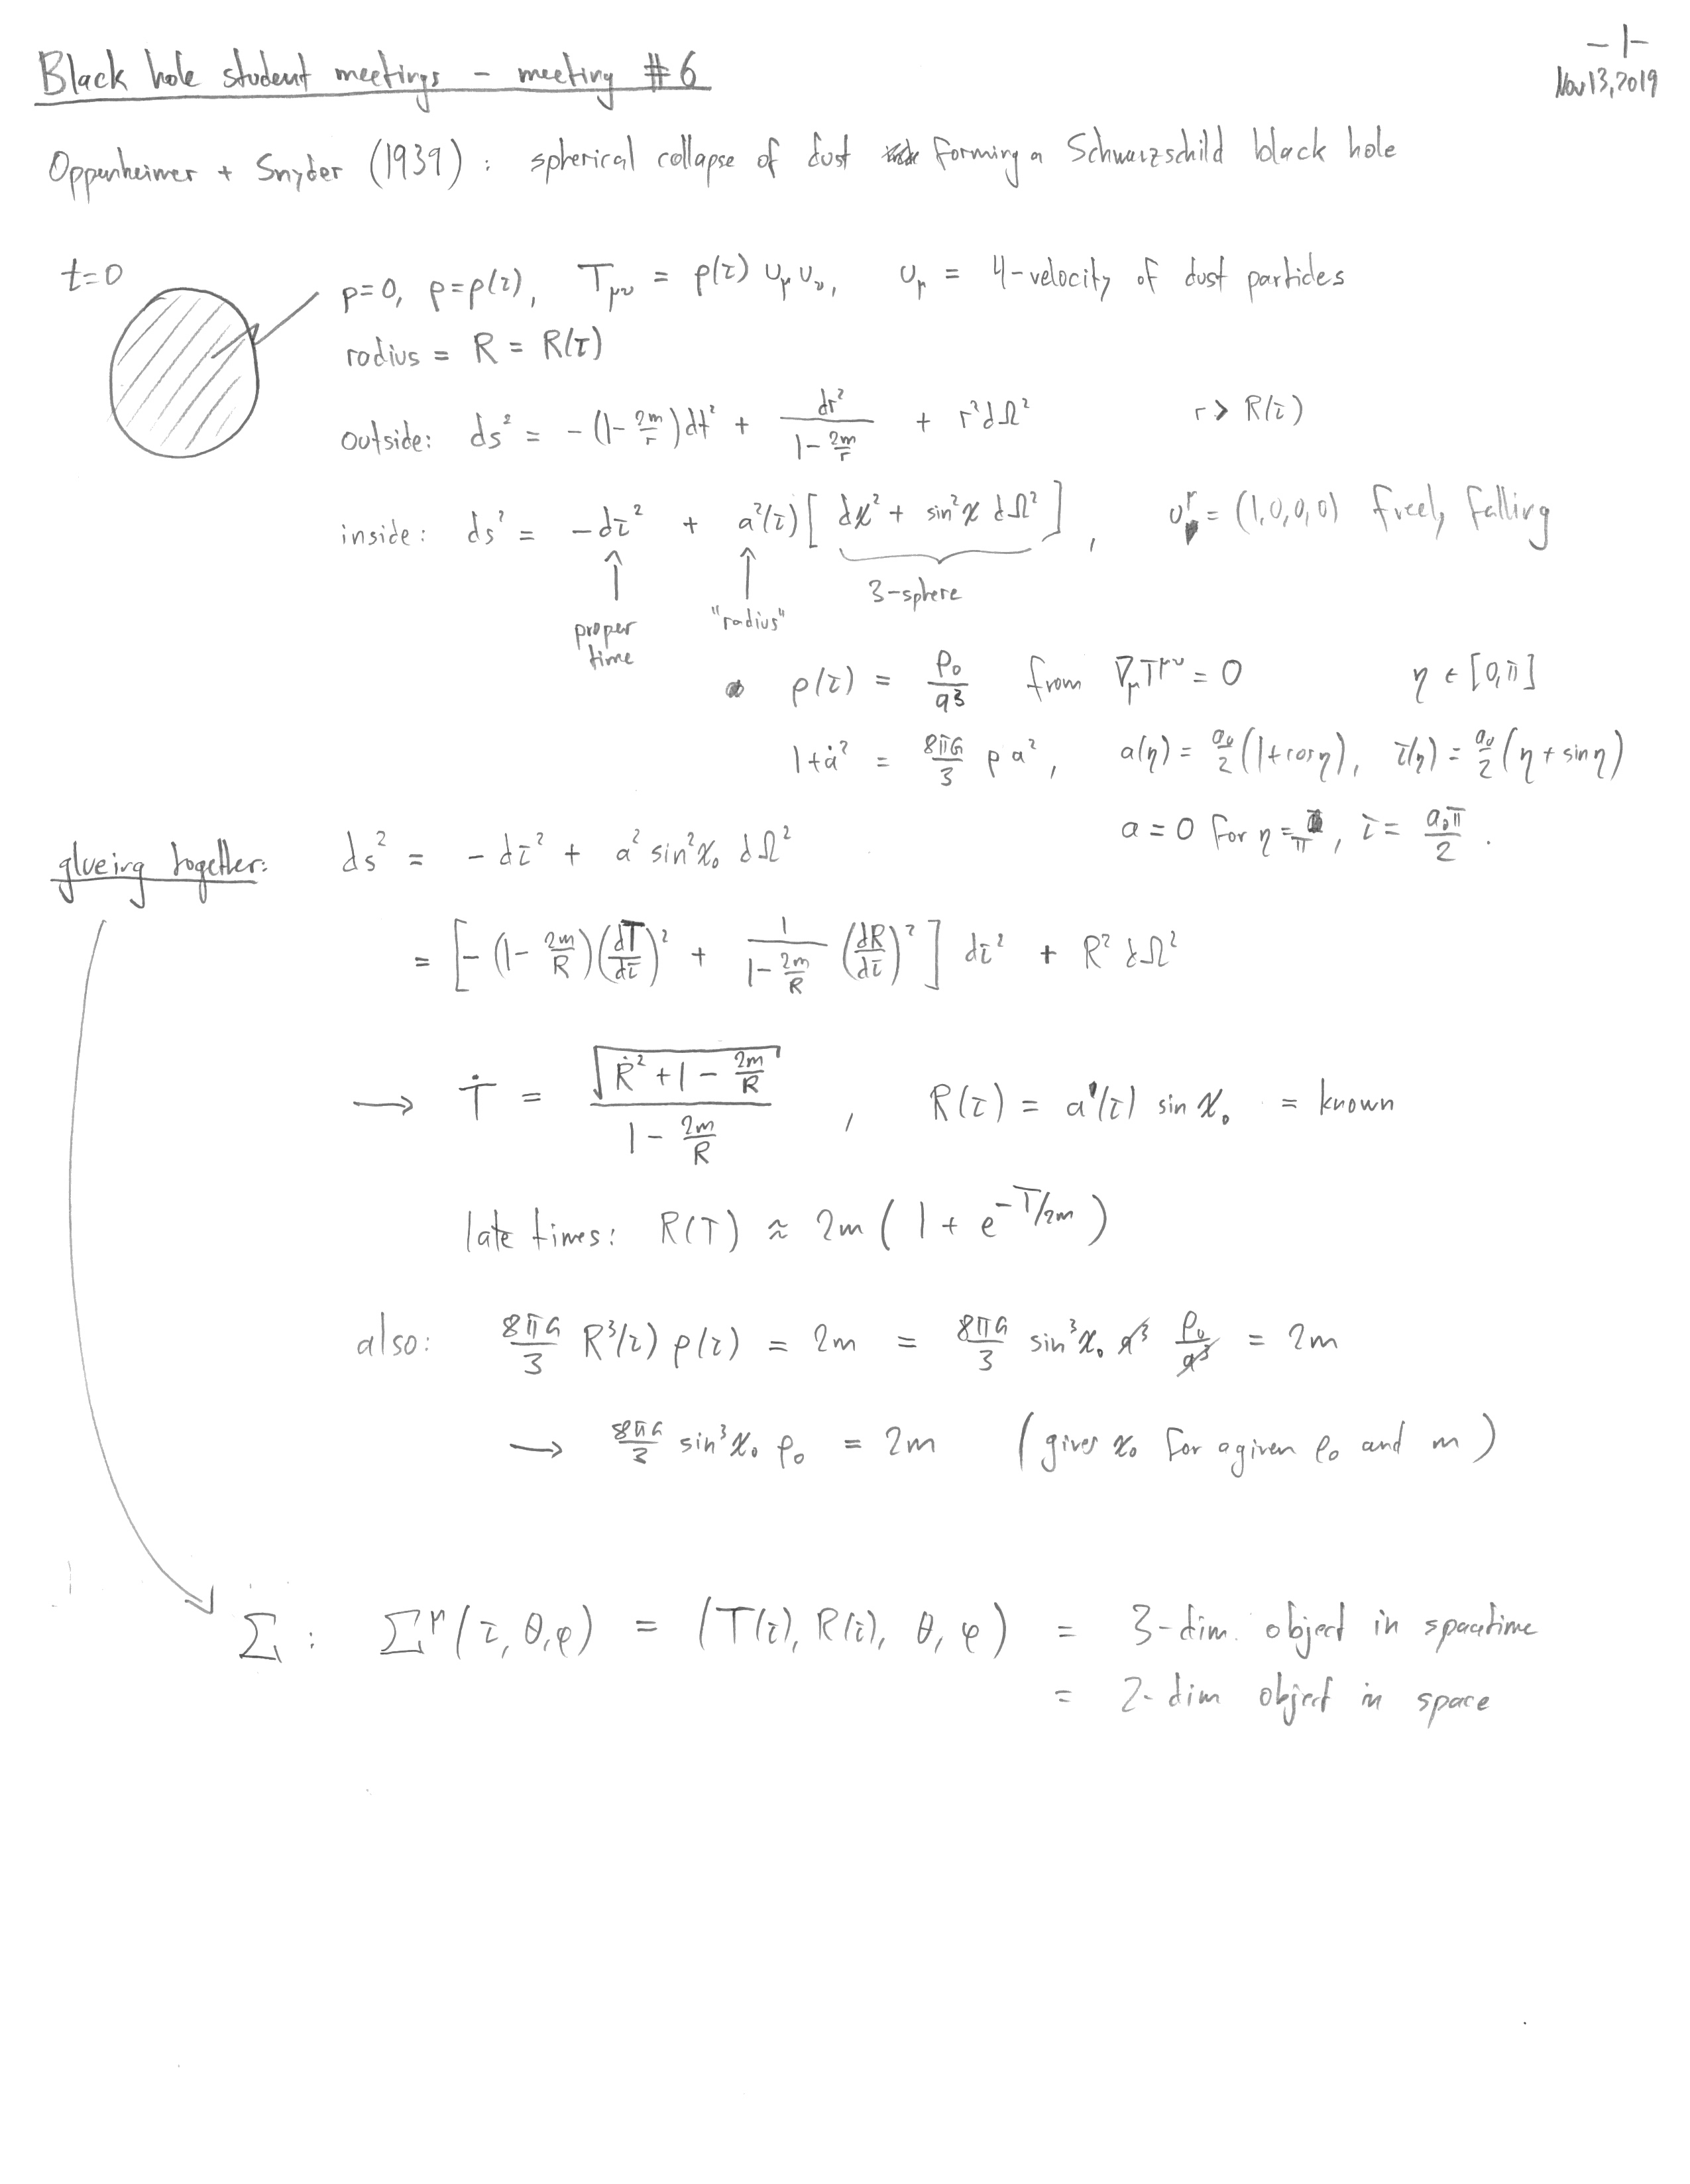 - 1 -
Black hole student meetings - meeting #6
Nov 13, 2019
Oppenheimer + Snyder (1939) : spherical collapse of dust forming a Schwarzschild black hole
t=0
p=0, ρ=ρ(τ), T_μν = ρ(τ) u_μ u_ν, u_μ = 4-velocity of dust particles
radius = R = R(τ)
outside: ds² = -(1-2m/r)dt² + dr²/(1-2m/r) + r²dΩ² r > R(τ)
inside: ds² = -dτ² + a²(τ)[dχ² + sin²χ dΩ²], u^μ = (1,0,0,0) freely falling
↑ ↑ 3-sphere
proper time "radius"
ρ(τ) = ρ₀/a³ from ∇_μ T^μν = 0 η ∈ [0,π]
1+ȧ² = 8πG/3 ρ a², a(η) = a₀/2 (1+cosη), τ(η) = a₀/2 (η + sinη)
a = 0 for η = π, τ = a₀π/2.
glueing together: ds² = -dτ² + a² sin²χ₀ dΩ²
= [-(1-2m/R)(dT/dτ)² + 1/(1-2m/R) (dR/dτ)²] dτ² + R² dΩ²
→ Ṫ = √(Ṙ²+1-2m/R) / (1-2m/R), R(τ) = a(τ) sin χ₀ = known
late times: R(T) ≈ 2m(1 + e^(-T/2m))
also: 8πG/3 R³(τ) ρ(τ) = 2m = 8πG/3 sin³χ₀ a³ ρ₀/a³ = 2m
→ 8πG/3 sin³χ₀ ρ₀ = 2m (gives χ₀ for a given ρ₀ and m)
Σ : Σ^μ(τ, θ, φ) = (T(τ), R(τ), θ, φ) = 3-dim. object in spacetime
= 2-dim object in space